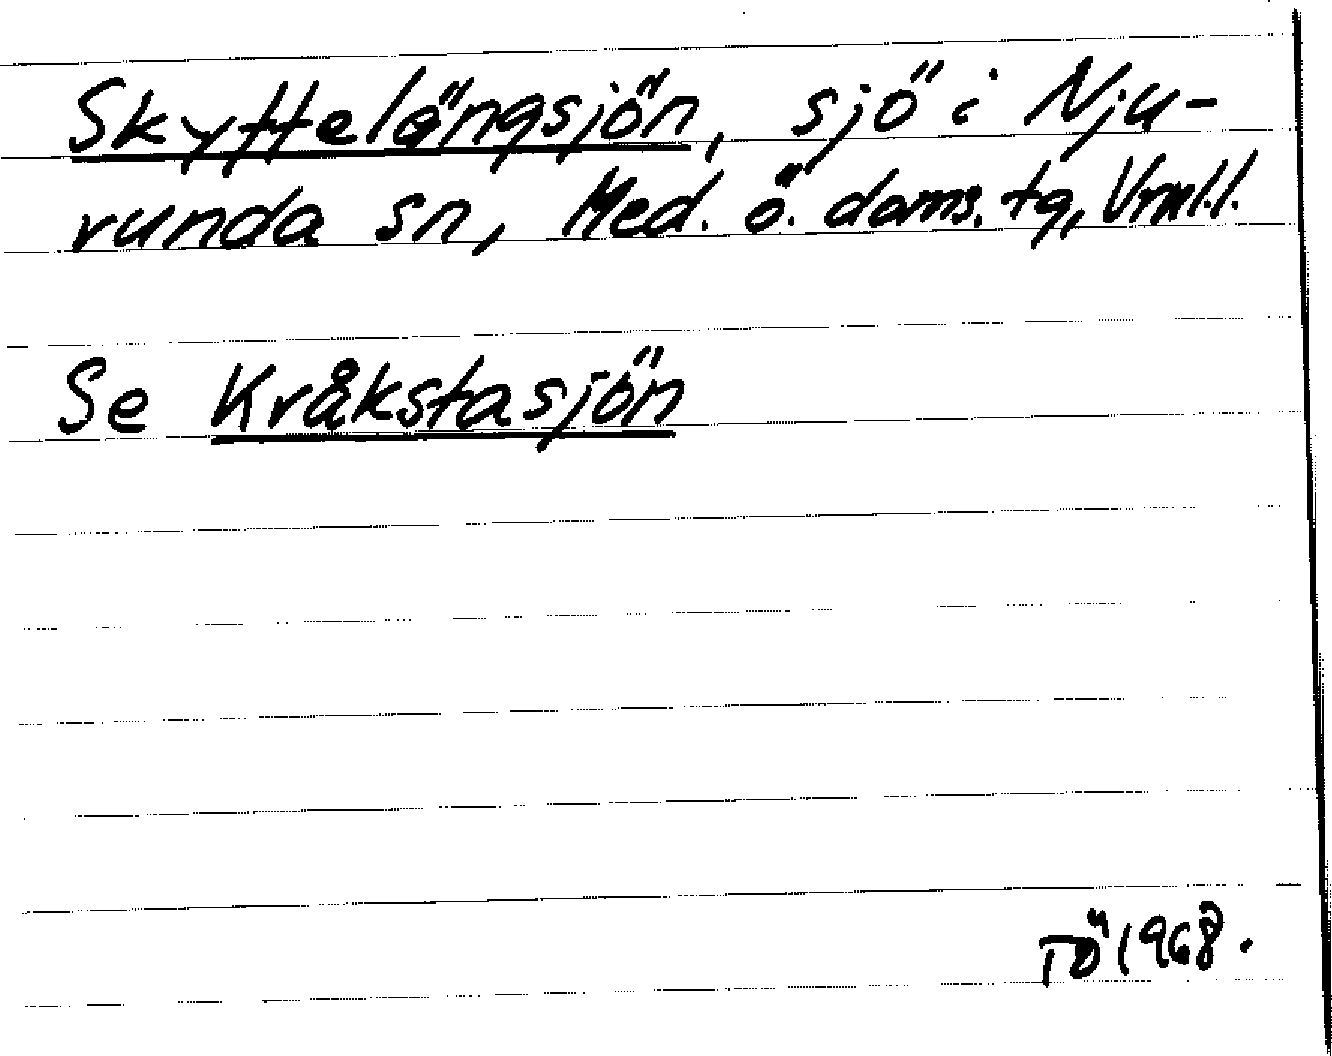 Skyttelängsjön, sjö i Nju-
runda sn, Med. ö. doms. tg, Vrml.l.
Se Kråkstasjön
TÖ 1968.